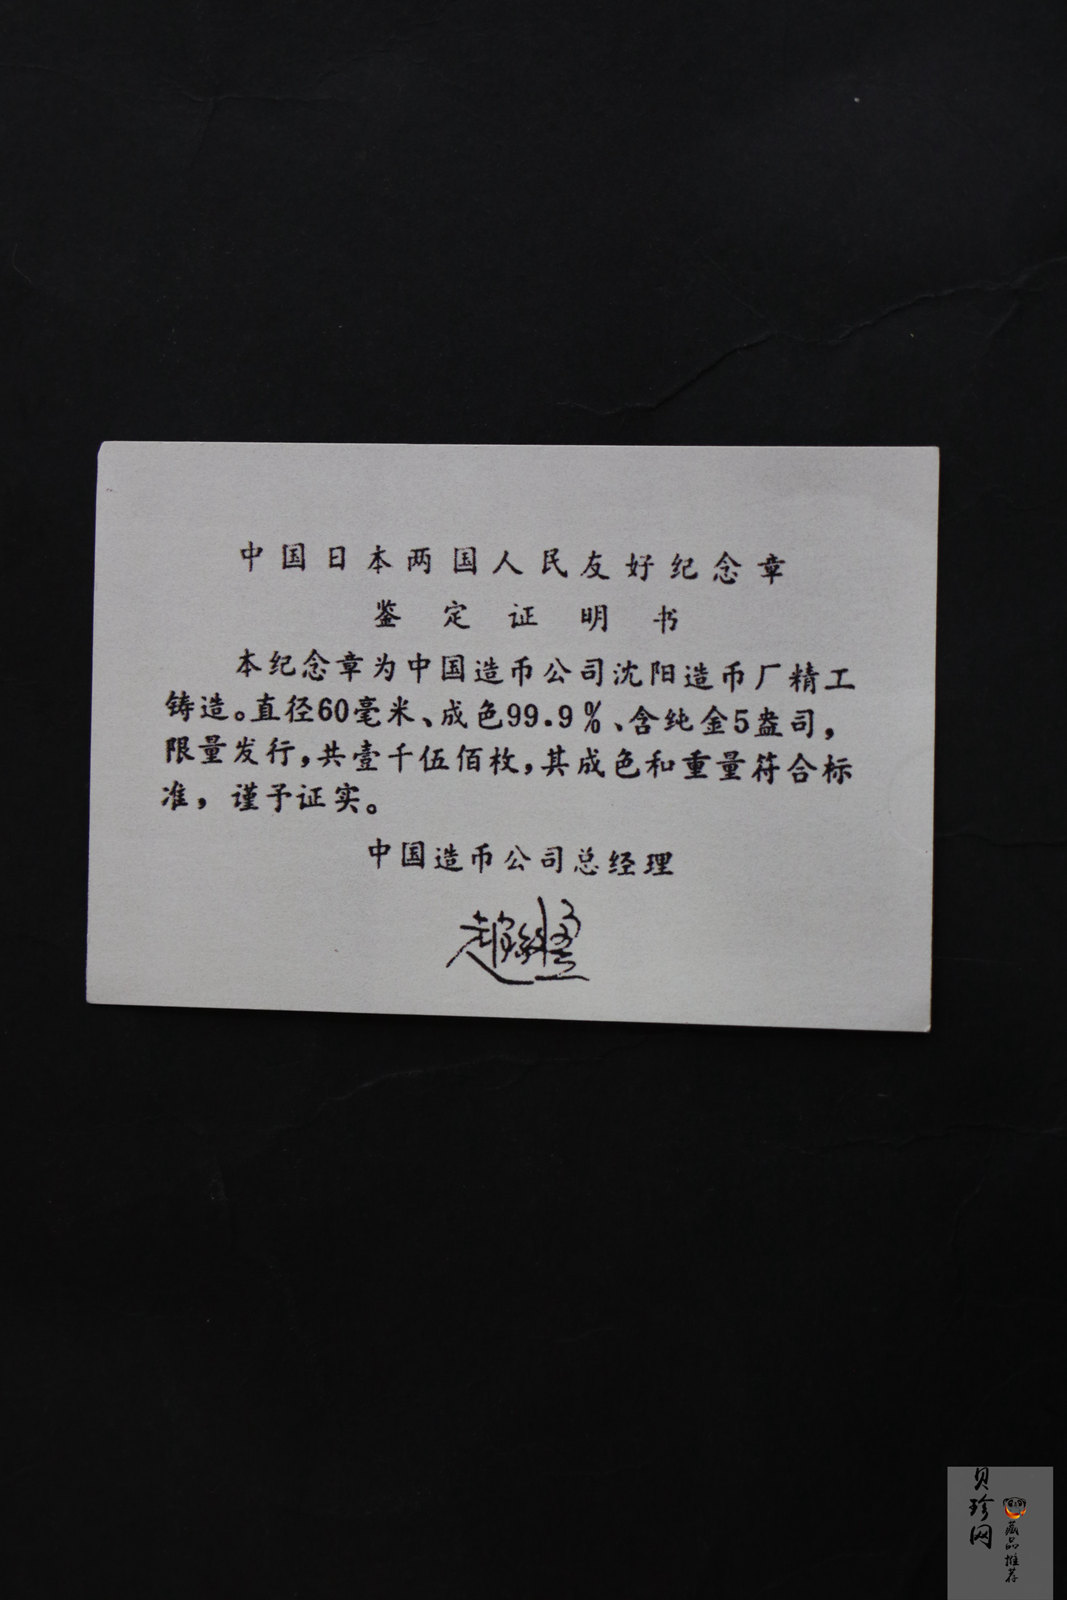 中国日本两国人民友好纪念章
鉴定证明书
本纪念章为中国造币公司沈阳造币厂精工
铸造。直径60毫米、成色99.9%、含纯金5盎司，
限量发行，共壹千伍佰枚，其成色和重量符合标
准，谨予证实。
中国造币公司总经理
贝珍网
藏品推荐